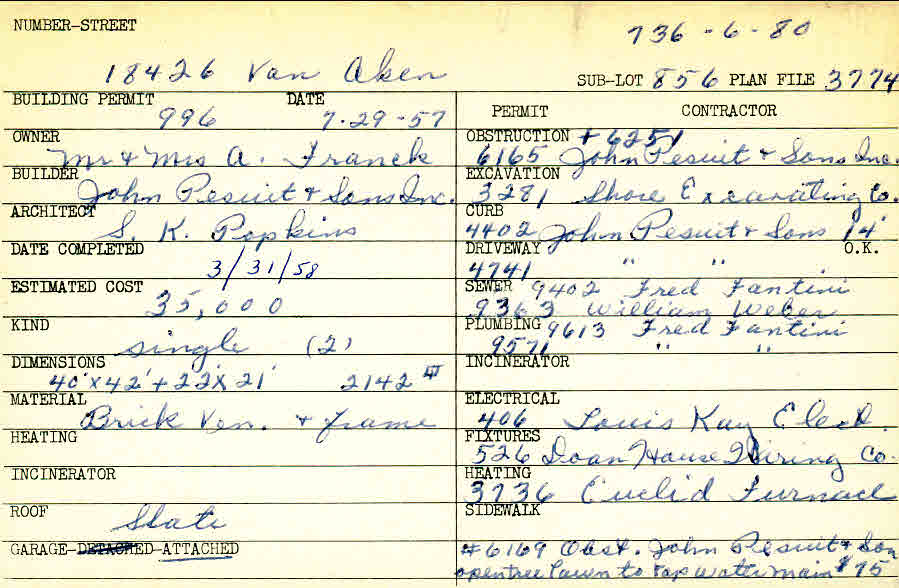 NUMBER-STREET
736-6-80
18426 Van Aken
SUB-LOT 856 PLAN FILE 3774
BUILDING PERMIT DATE
996 7-29-57
OWNER
Mr & Mrs A. Franck
BUILDER
John Pesuit & Sons Inc.
ARCHITECT
S. K. Popkins
DATE COMPLETED
3/31/58
ESTIMATED COST
35,000
KIND
single (2)
DIMENSIONS
40'x42'+22'x21' 2142
MATERIAL
Brick Ven. & frame
HEATING
INCINERATOR
ROOF
Slate
GARAGE-DETACHED-ATTACHED
PERMIT CONTRACTOR
OBSTRUCTION +6251
6165 John Pesuit & Sons Inc.
EXCAVATION
3281 Shore Excavating Co.
CURB
4402 John Pesuit & Sons 14'
DRIVEWAY O.K.
4741 " "
SEWER 9402 Fred Fantini
9363 William Weber
PLUMBING 9613 Fred Fantini
9571 " "
INCINERATOR
ELECTRICAL
406 Louis Kay Elect.
FIXTURES
526 Doan House Wiring Co.
HEATING
3736 Euclid Furnace
SIDEWALK
#6169 Obst. John Pesuit & Son
open tree lawn to tap water main $75